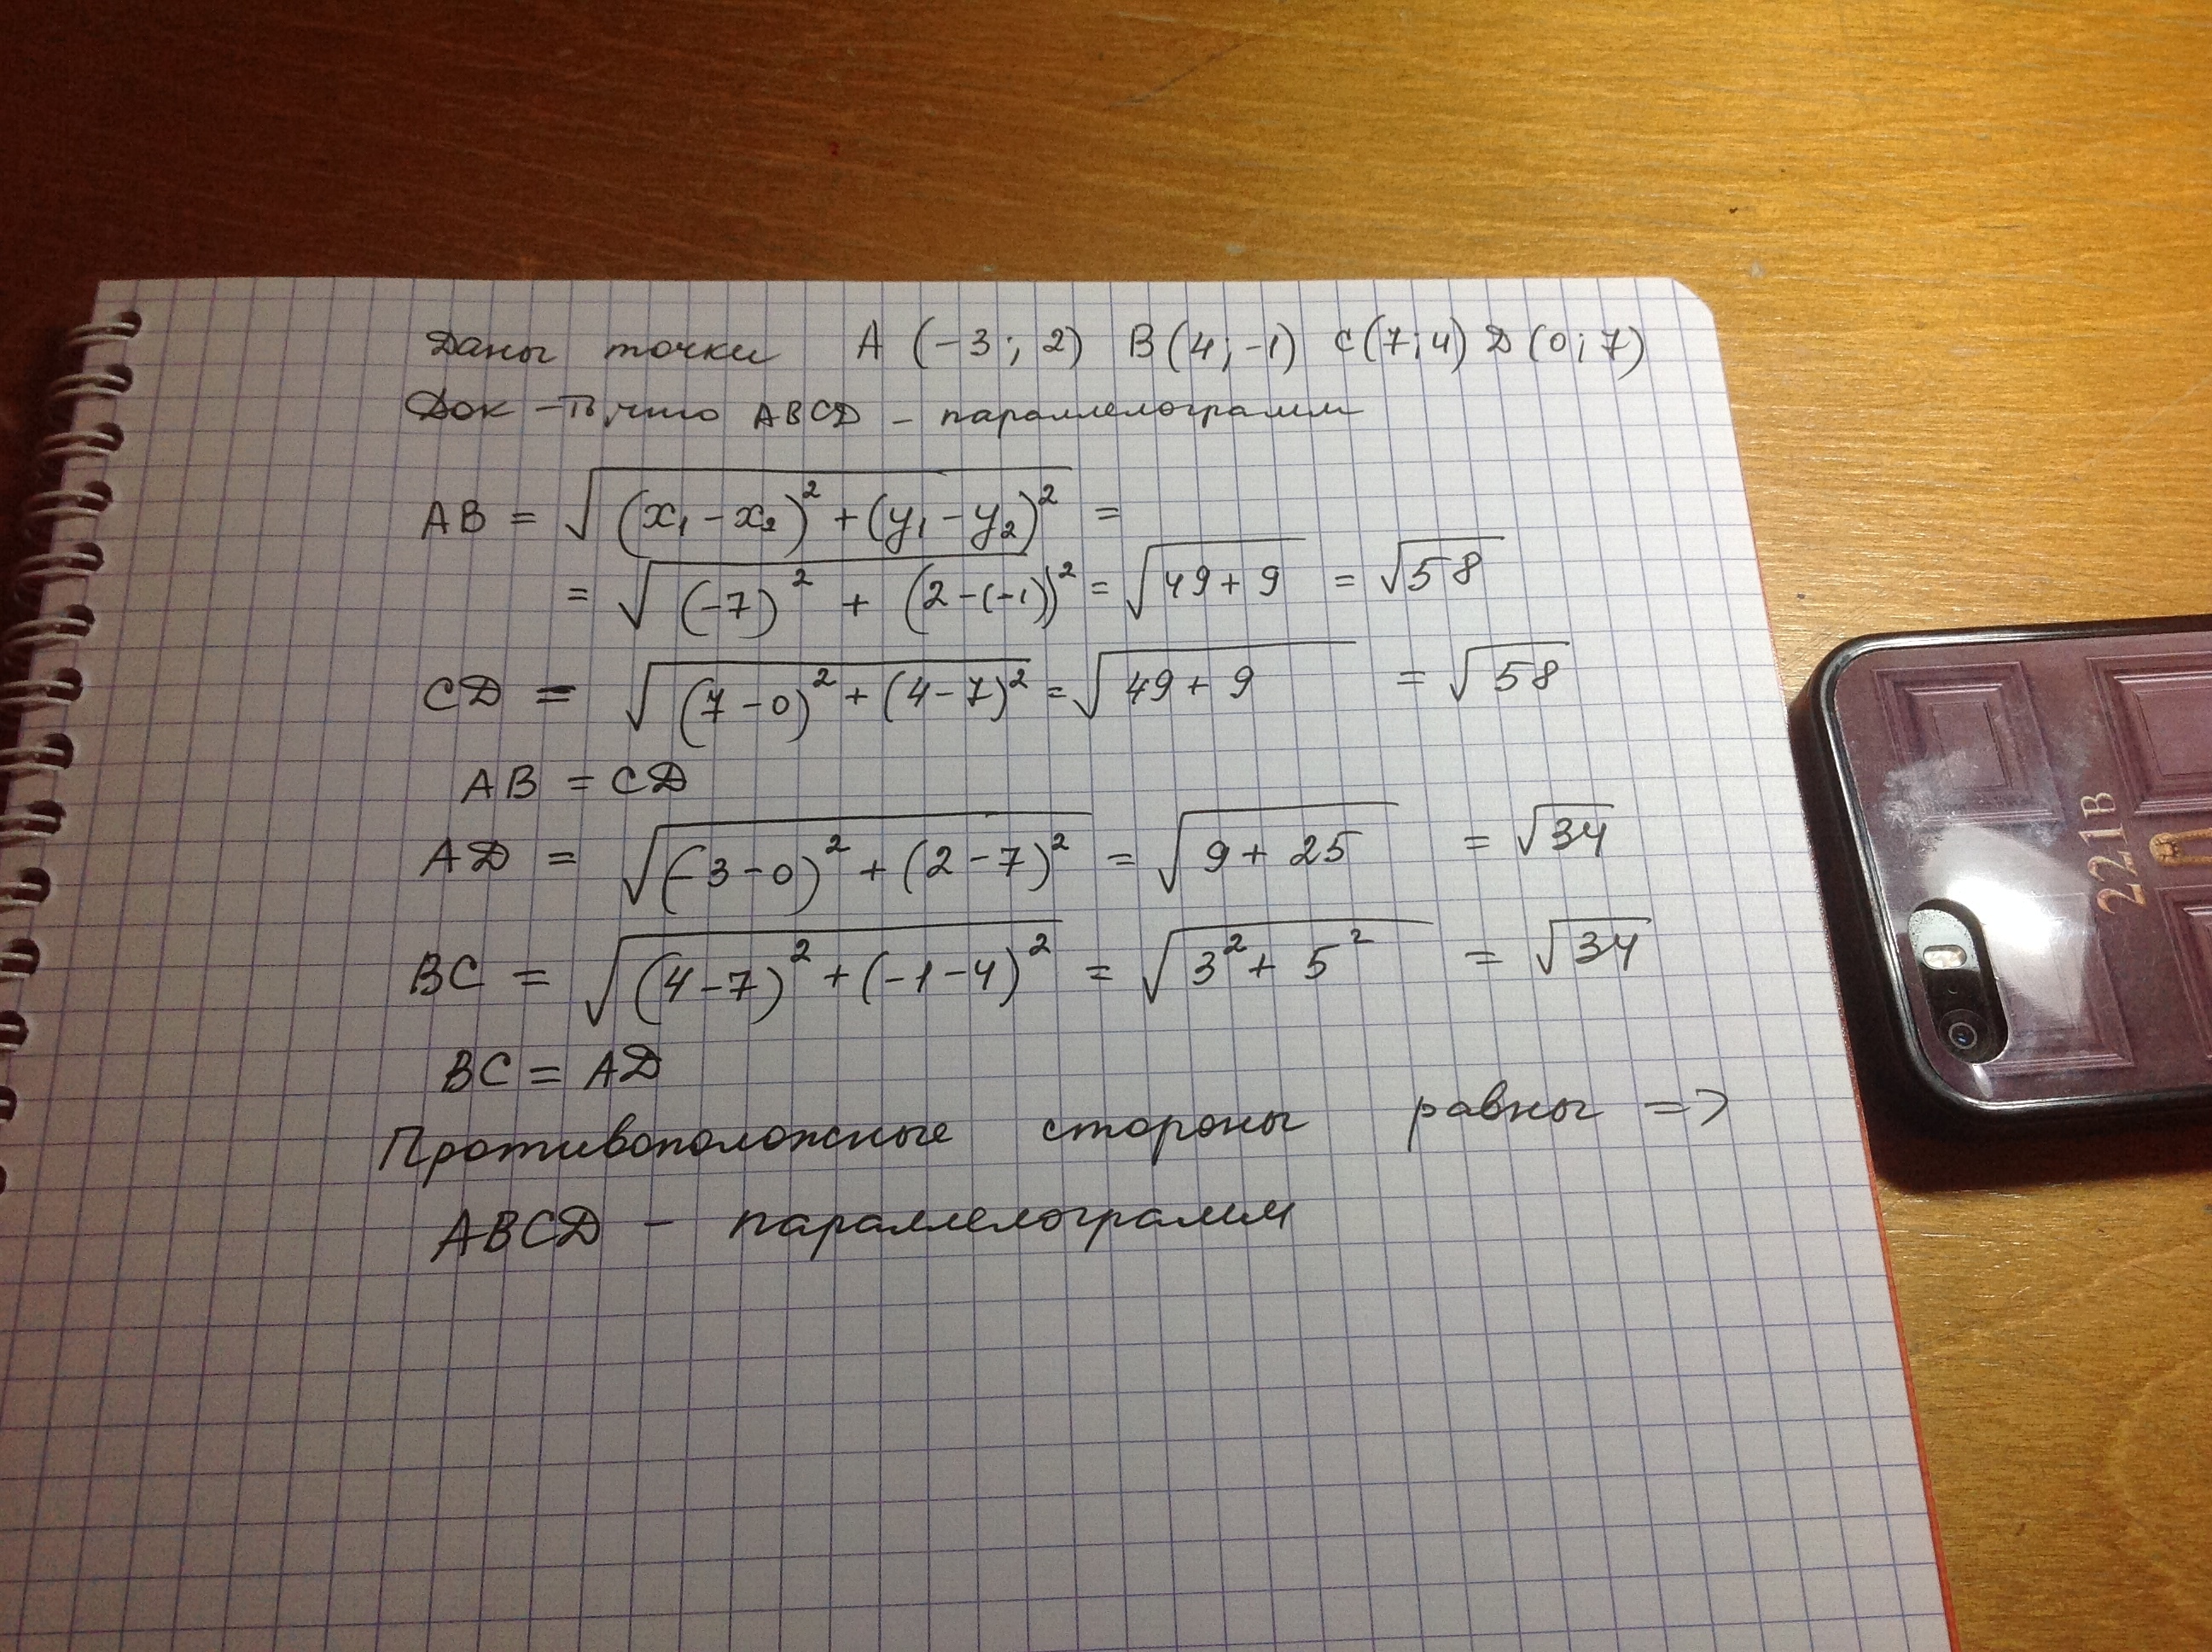 Даны точки A (-3; 2) B(4; -1) C(7; 4) D(0; 7)
Док-ть, что ABCD - параллелограмм
AB = √((x₁-x₂)² + (y₁-y₂)²) =
= √((-7)² + (2-(-1))²) = √(49+9) = √58
CD = √((7-0)² + (4-7)²) = √(49+9) = √58
AB = CD
AD = √((-3-0)² + (2-7)²) = √(9+25) = √34
BC = √((4-7)² + (-1-4)²) = √(3²+5²) = √34
BC = AD
Противоположные стороны равны =>
ABCD - параллелограмм
221B